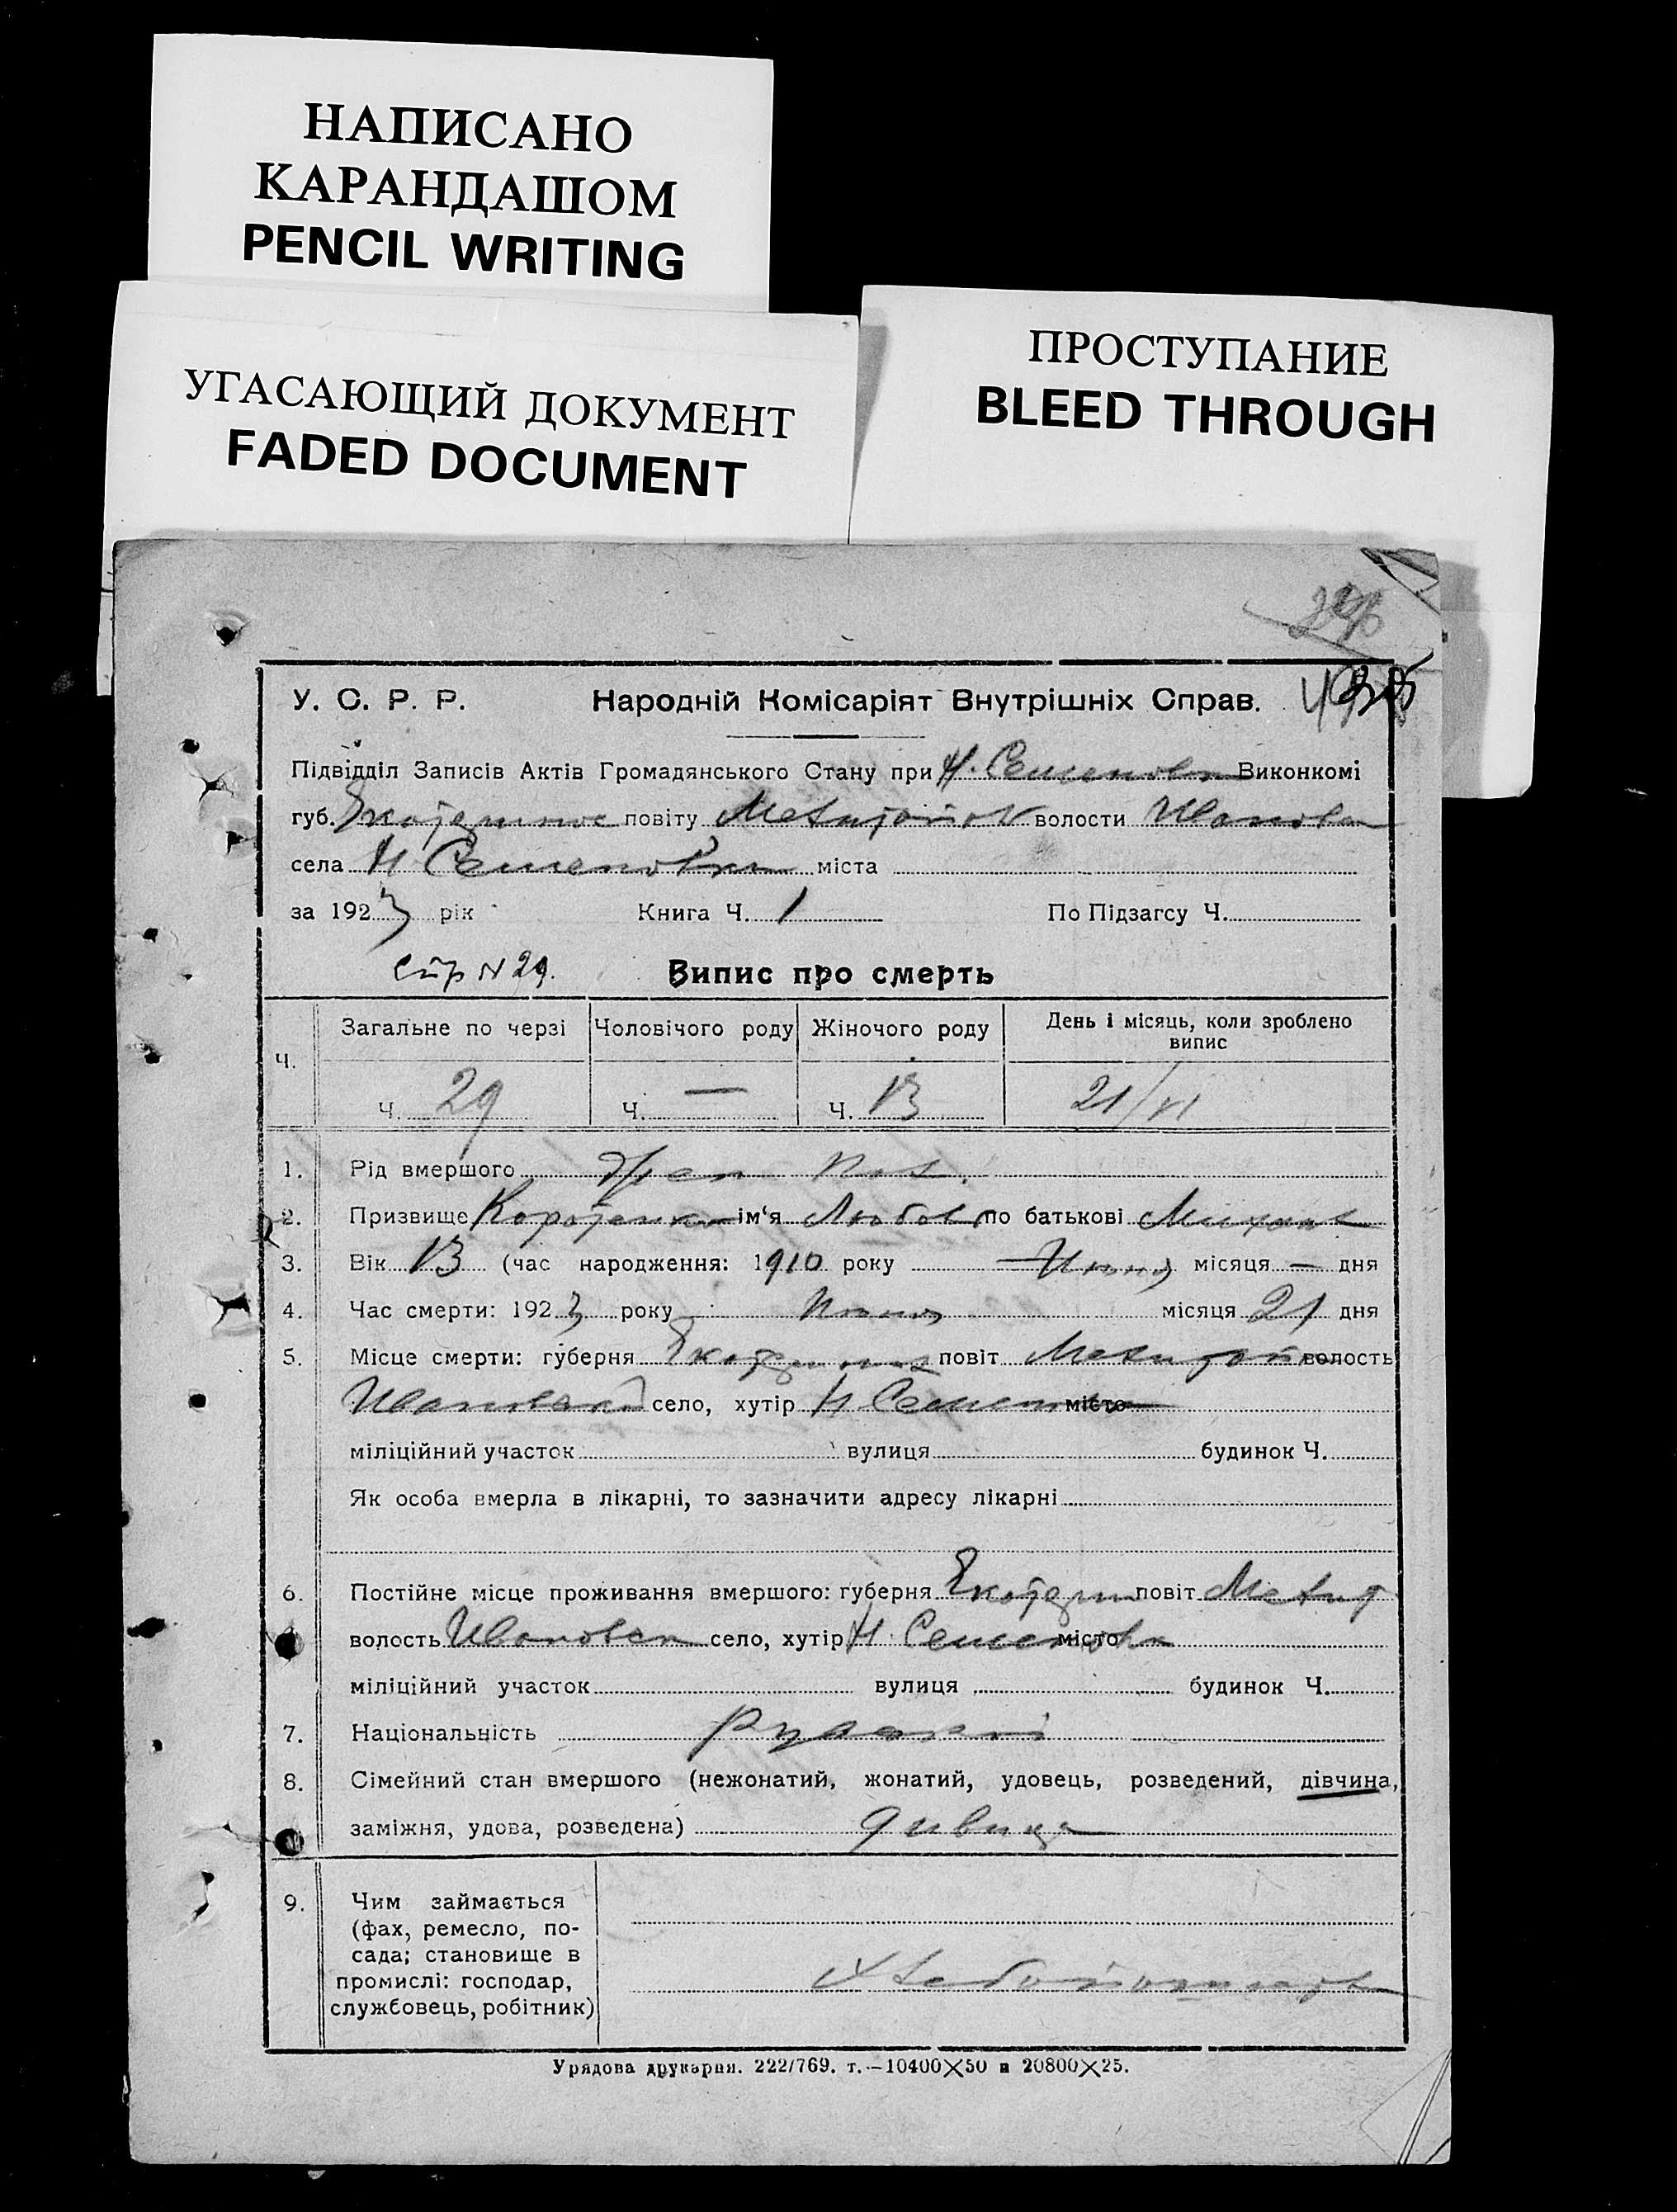 НАПИСАНО
КАРАНДАШОМ
PENCIL WRITING
УГАСАЮЩИЙ ДОКУМЕНТ
FADED DOCUMENT
ПРОСТУПАНИЕ
BLEED THROUGH
У. С. Р. Р. Народній Комісаріят Внутрішніх Справ.
Підвідділ Записів Актів Громадянського Стану при Н. Семеновк Виконкомі
губ. повіту волости Ивановск
села Н Семеновки міста
за 1923 рік Книга Ч. 1 По Підзагсу Ч.
Стр N 29. Випис про смерть
Ч. Загальне по черзі Чоловічого роду Жіночого роду День і місяць, коли зроблено
випис
Ч. 29 Ч. — Ч. 13 21/VI
1. Рід вмершого Жен пол.
2. Призвище імʼя Любовь по батькові
3. Вік 13 (час народження: 1910 року месяця — дня
4. Час смерти: 1923 року Июня місяця 21 дня
5. Місце смерти: губерня повіт волость
село, хутір Н Семеновка місто
міліційний участок вулиця будинок Ч.
Як особа вмерла в лікарні, то зазначити адресу лікарні
6. Постійне місце проживання вмершого: губерня повіт Мелит
волость Ивановск село, хутір Н. Семеновка місто
міліційний участок вулиця будинок Ч.
7. Національність
8. Сімейний стан вмершого (нежонатий, жонатий, удовець, розведений, дівчина,
заміжня, удова, розведена) дивица
9. Чим займається
(фах, ремесло, по-
сада; становище в
промислі: господар,
службовець, робітник)
Урядова друкарня. 222/769. т.—10400×50 и 20800×25.